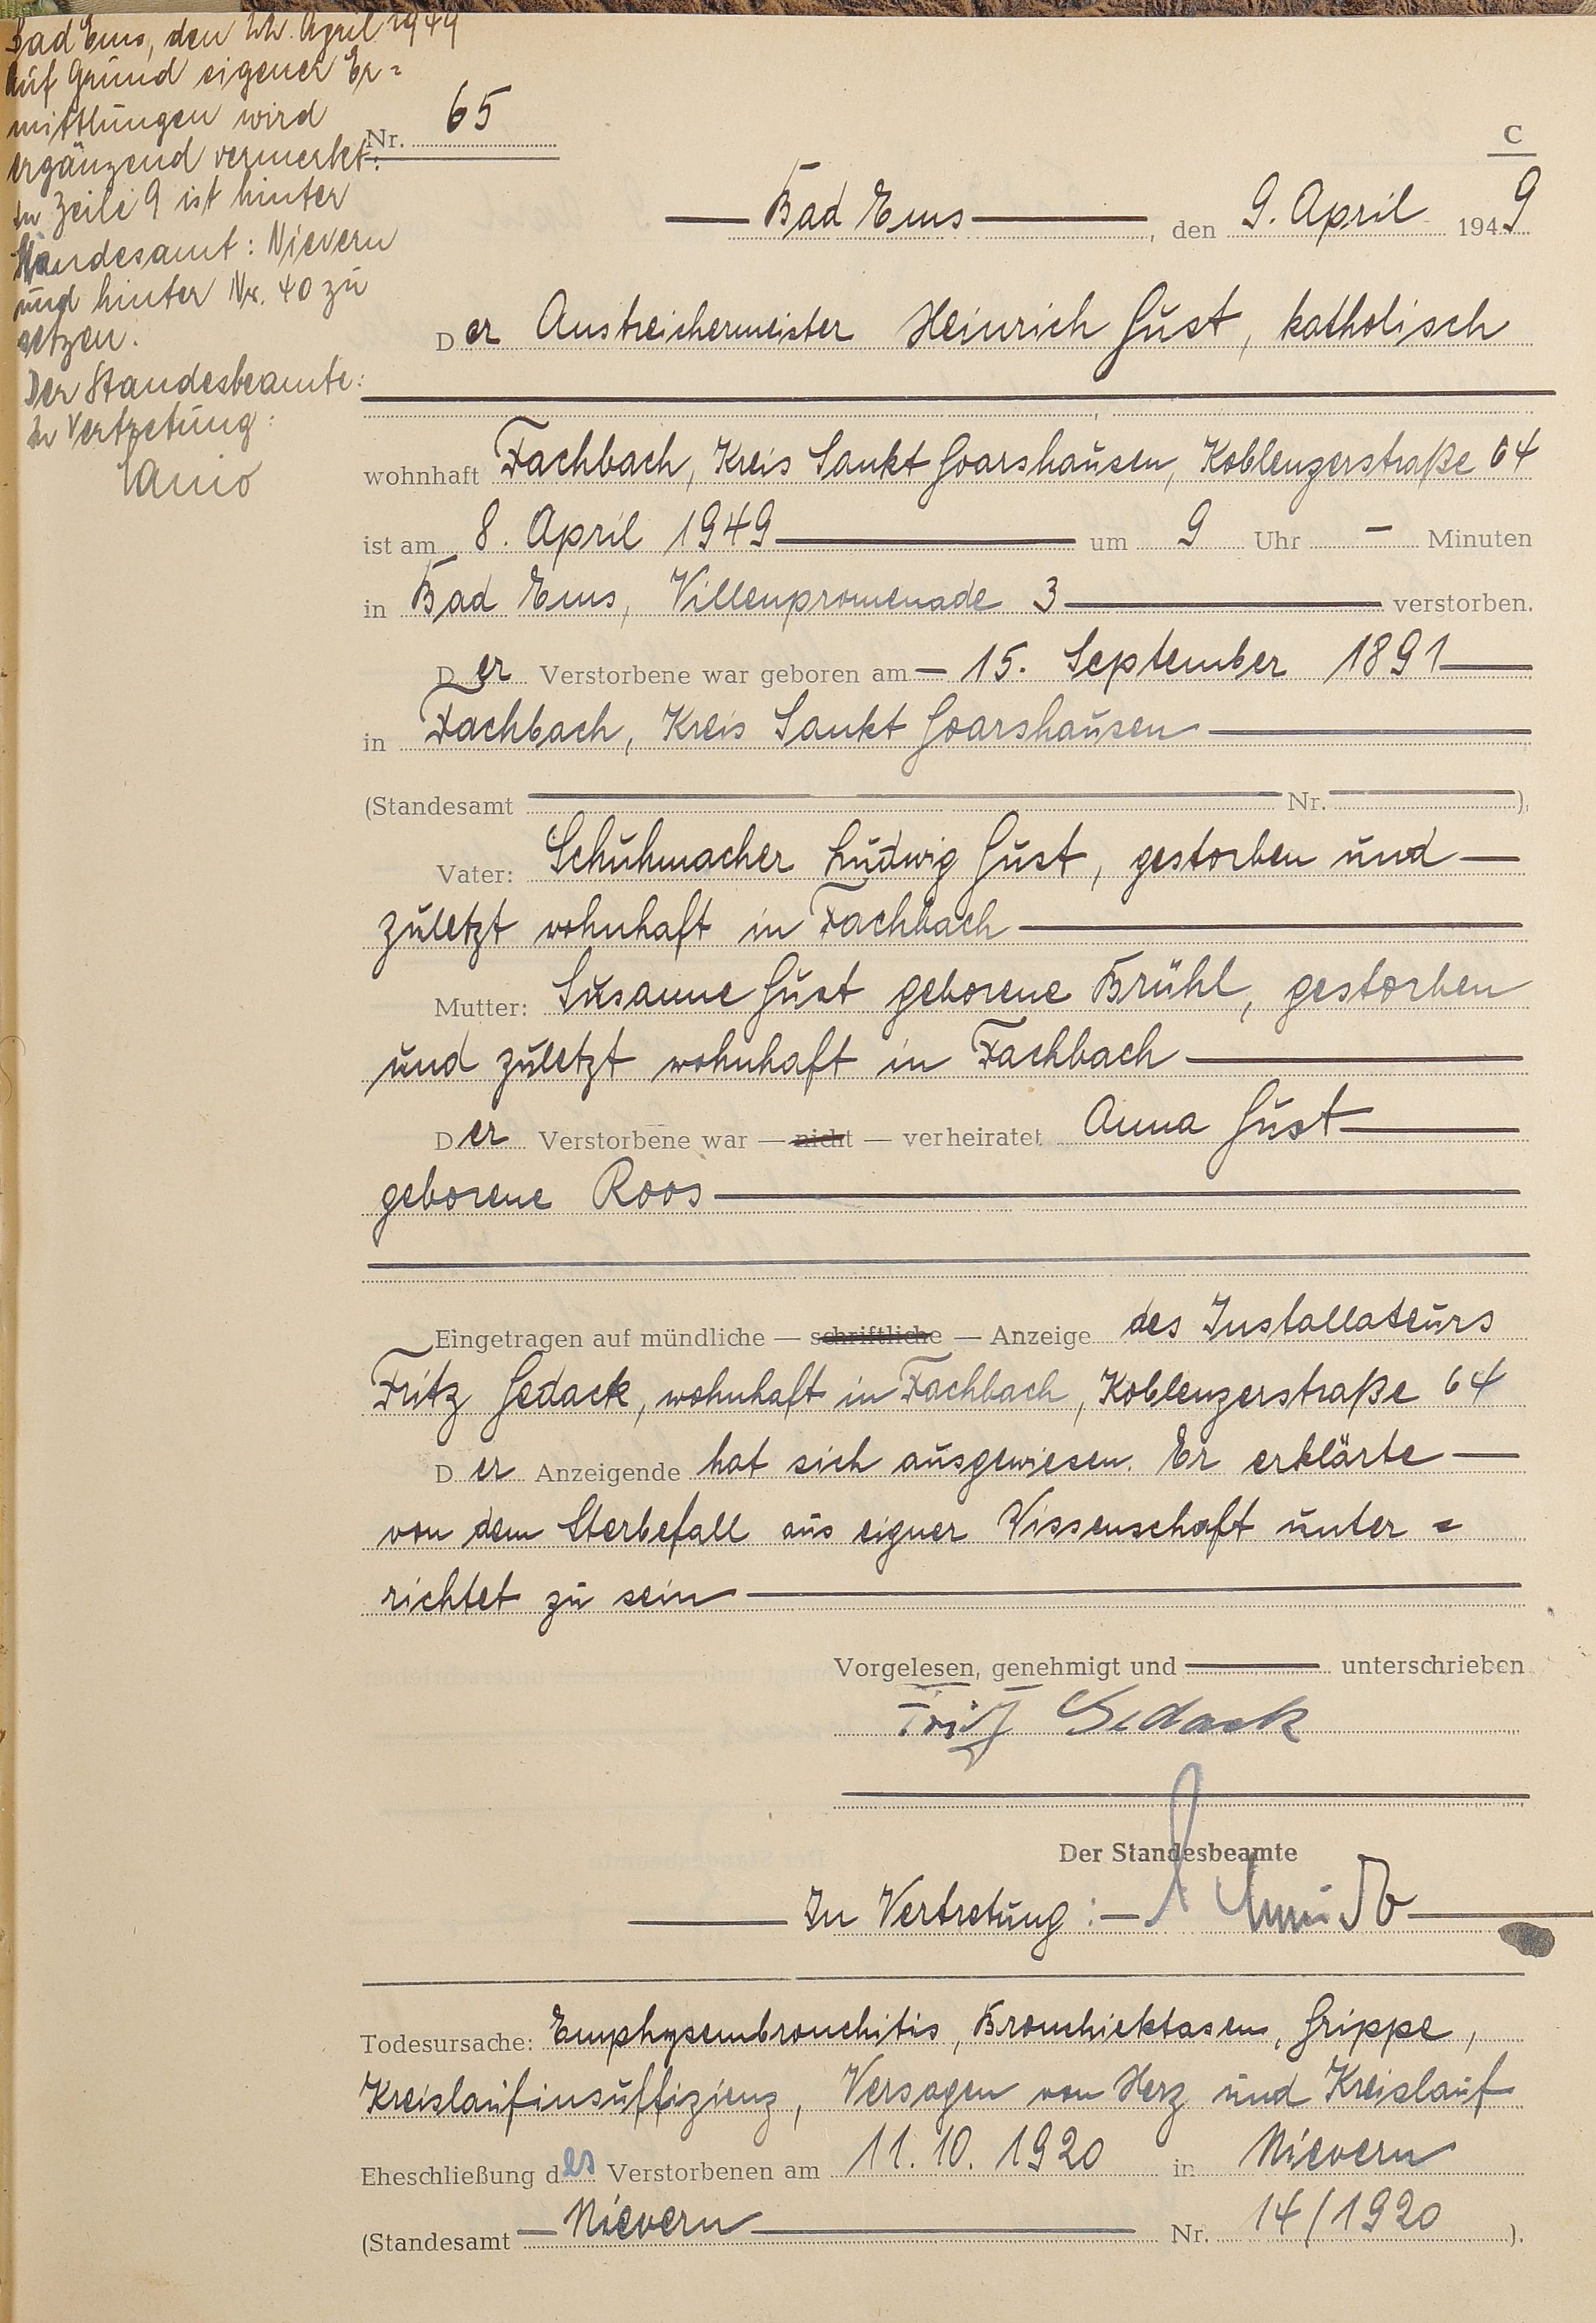 Bad Ems, den 22. April 1949
Auf Grund eigener Er=
mittlungen wird
ergänzend vermerkt:
In Zeile 9 ist hinter
Standesamt: Nievern
und hinter Nr. 40 zu
setzen.
Der Standesbeamte:
In Vertretung:
Nr. 65
C
Bad Ems, den 9. April 1949
Der Anstreichermeister Heinrich Gust, katholisch
wohnhaft Fachbach, Kreis Sankt Goarshausen, Koblenzerstraße 64
ist am 8. April 1949 um 9 Uhr – Minuten
in Bad Ems, Villenpromenade 3 verstorben.
Der Verstorbene war geboren am – 15. September 1891
in Fachbach, Kreis Sankt Goarshausen
(Standesamt Nr. ),
Vater: Schuhmacher Ludwig Gust, gestorben und
zuletzt wohnhaft in Fachbach
Mutter: Susanne Gust geborene Brühl, gestorben
und zuletzt wohnhaft in Fachbach
Der Verstorbene war — nicht — verheiratet Anna Gust
geborene Roos
Eingetragen auf mündliche — schriftliche — Anzeige des Installateurs
Fritz Gedack, wohnhaft in Fachbach, Koblenzerstraße 64
Der Anzeigende hat sich ausgewiesen. Er erklärte
von dem Sterbefall aus eigner Wissenschaft unter=
richtet zu sein
Vorgelesen, genehmigt und unterschrieben
Fritz Gedack
Der Standesbeamte
In Vertretung: Schmidt
Todesursache: Emphysembronchitis, Bronchiektasen, Grippe,
Kreislaufinsuffizienz, Versagen von Herz und Kreislauf
Eheschließung des Verstorbenen am 11.10.1920 in Nievern
(Standesamt Nievern Nr. 14/1920 ).